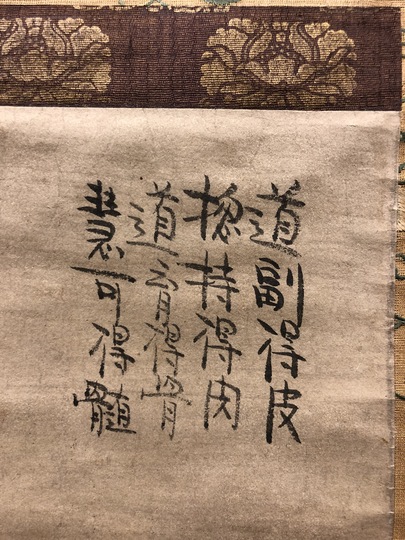 道副得皮
捴持得肉
道育得骨
慧可得髓